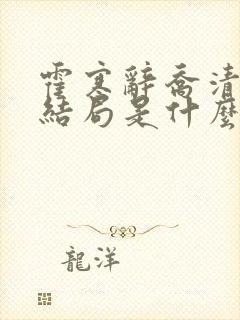 霍寒辭喬清
結局是什麼
龍洋